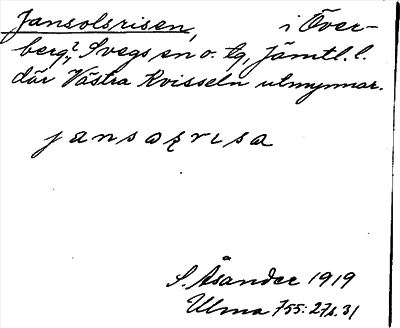 Jansolsrisen, i Över-
berg?, Svegs sn o. tg, Jämtl. l.
där Västra Kvisseln utmynnar.
S. Åsander 1919
Ulma 755: 27 s. 31